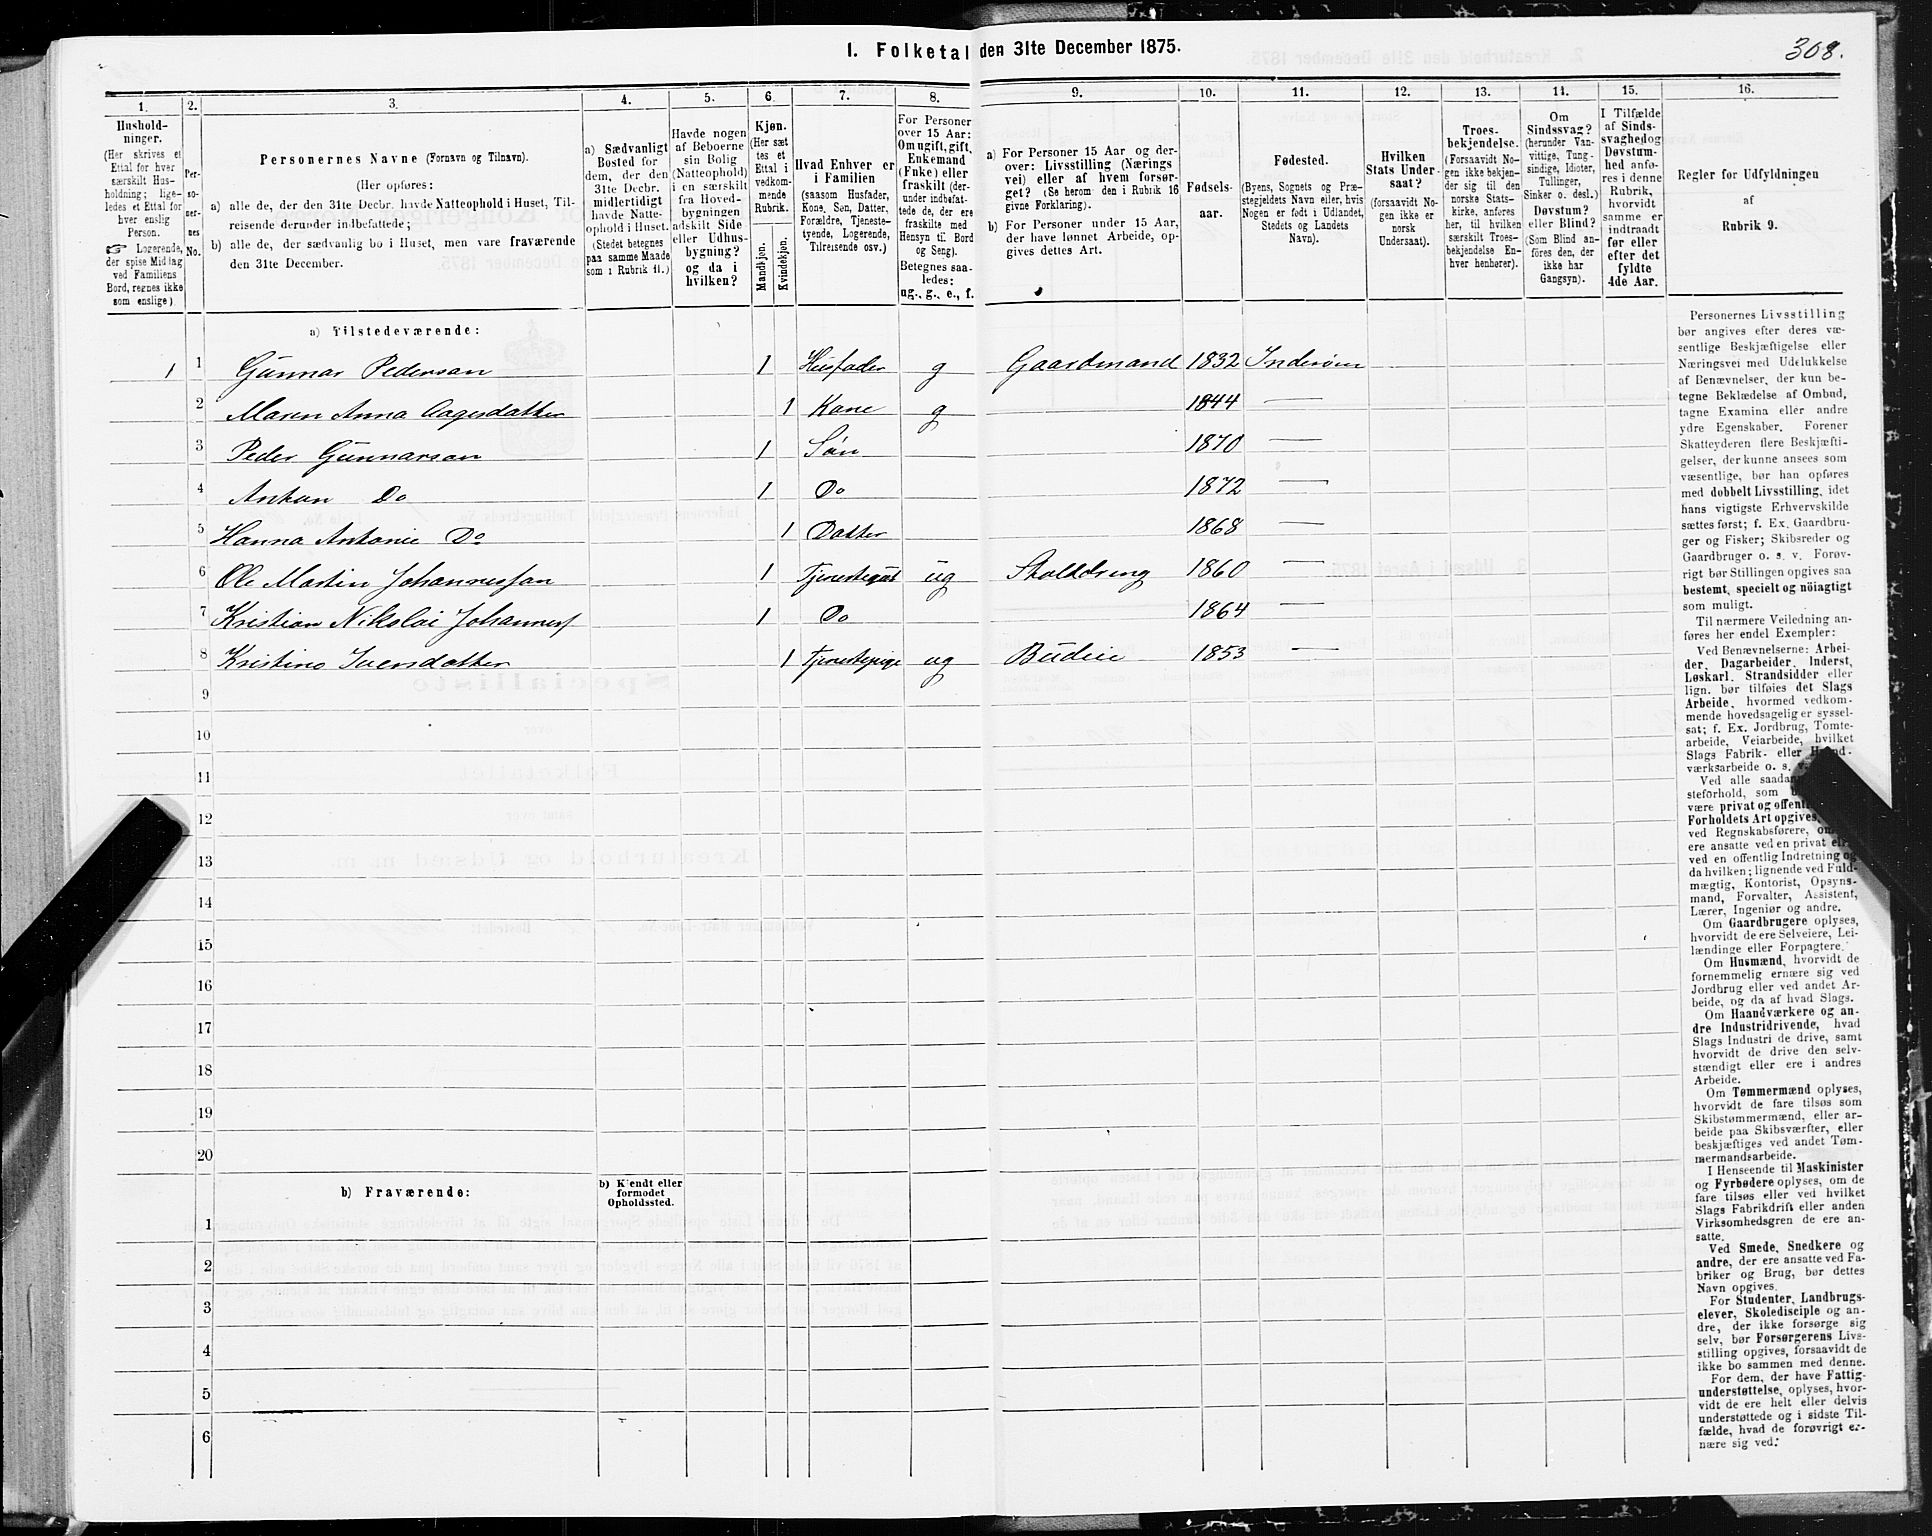 1. Folketal den 31te December 1875.
308.
1.
2.
3.
4.
5.
6.
7.
8.
9.
10.
11.
12.
13.
14.
15.
16.
Hushold-
ninger.
(Her skrives et
Ettal for hver
særskilt Hus-
holdning; lige-
ledes et Ettal for
hver enslig
Person.
☞ Logerende,
der spise Middag
ved Familiens
Bord, regnes ikke
som enslige)
Per-
so-
ner-
nes
No.
Personernes Navne (Fornavn og Tilnavn).
(Her opføres:
a) alle de, der den 31te Decbr. havde Natteophold i Huset, Til-
reisende derunder indbefattede;
b) alle de, der sædvanlig bo i Huset, men vare fraværende
den 31te December.
a) Sædvanligt
Bosted for
dem, der den
31te Decbr.
midlertidigt
havde Natte-
ophold i Huset.
(Stedet betegnes
paa samme Maade
som i Rubrik 11.)
Havde nogen
af Beboerne
sin Bolig
(Natteophold)
i en særskilt
fra Hoved-
bygningen
adskilt Side
eller Udhus-
bygning?
og da i
hvilken?
Kjøn.
(Her sæt
tes et
Ettal i
vedkom-
mende
Rubrik.
Mandkjøn.
Kvindekjøn.
Hvad Enhver er
i Familien
(saasom Husfader,
Kone, Søn, Datter,
Forældre, Tjeneste-
tyende, Logerende,
Tilreisende osv.)
For Personer
over 15 Aar:
Om ugift, gift,
Enkemand
(Enke) eller
fraskilt (der-
under indbefat-
tede de, der ere
fraskilte med
Hensyn til Bord
og Seng).
Betegnes saa-
ledes:
ug., g., e., f.
a) For Personer 15 Aar og der-
over: Livsstilling (Nærings
vei) eller af hvem forsør-
get? (Se herom den i Rubrik 16
givne Forklaring).
b) For Personer under 15 Aar,
der have lønnet Arbeide, op-
gives dettes Art.
Fødsels-
aar.
Fødested.
(Byens, Sognets og Præ-
stegjeldets Navn eller, hvis
Nogen er født i Udlandet,
Stedets og Landets
Navn).
Hvilken
Stats Under-
saat?
(forsaavidt No-
gen ikke er
norsk
Undersaat).
Troes-
bekjendelse.
(Forsaavidt No-
gen ikke bekjen-
der sig til den
norske Stats-
kirke, anføres
her, til hvilken
særskilt Troes-
bekjendelse En-
hver henhører).
Om
Sindssvag?
(herunder Van-
vittige, Tung-
sindige, Idioter,
Tullinger,
Sinker o. desl.)
Døvstum?
eller Blind?
(Som Blind an-
føres den, der
ikke har
Gangsyn).
I Tilfælde
af Sinds-
svaghed og
Døvstum-
hed anfø-
res i denne
Rubrik,
hvorvidt
samme er
indtraadt
før eller
efter det
fyldte
4de Aar.
Regler for Udfyldningen
af
Rubrik 9.
a) Tilstedeværende:
1 1 Gunnar Pederson 1 Husfader g Gaardmand 1832 Inderøen
2 Maren Anna Aagesdatter 1 Kone g 1844 —
3 Peder Gunnarson 1 Søn 1870 —
4 Anton Do 1 Do 1872 —
5 Hanna Antonie Do 1 Datter 1868 —
6 Ole Martin Johannesson 1 Tjenestegut ug 1860 —
7 Kristian Nikolai Johannes 1 Do 1864 —
8 Kristine Iversdatter 1 Tjenestepige ug Budeie 1853 —
9
10
11
12
13
14
15
16
17
18
19
20
b) Fraværende:
b) Kjendt eller
formodet
Opholdssted.
1
2
3
4
5
6
Personernes Livsstilling
bør angives efter deres væ-
sentlige Beskjæftigelse eller
Næringsvei med Udelukkelse
af Benævnelser, der kun be-
tegne Beklædelse af Ombud,
tagne Examina eller andre
ydre Egenskaber. Forener
Skatteyderen flere Beskjæfti-
gelser, der kunne ansees som
væsentlige, bør han opføres
med dobbelt Livsstilling, idet
hans vigtigste Erhvervskilde
sættes først; f. Ex. Gaardbru-
ger og Fisker; Skibsreder og
Gaardbruger o. s. v. Forøv-
rigt bør Stillingen opgives saa
bestemt, specielt og nöiagtigt
som muligt.
Til nærmere Veiledning an-
føres her endel Exempler:
Ved Benævnelserne: Arbei-
der, Dagarbeider, Inderst,
Løskarl, Strandsidder eller
lign. bør tilføies det Slags
Arbeide, hvormed vedkom-
mende hovedsagelig er syssel-
sat; f. Ex. Jordbrug, Tomte-
arbeide, Veiarbeide, hvilket
Slags Fabrik- eller Haand-
værksarbeide o. s. v.
Ved alle saadan
steforhold, som
være privat og offent
Forholdets Art opgives,
ved Regnskabsførere, om
ere ansatte ved en privat el
ved en offentlig Indretning og
da hvilken; lignende ved Fuld-
mægtig, Kontorist, Opsyns-
mand, Forvalter, Assistent,
Lærer, Ingeniør og andre.
Om Gaardbrugere oplyses,
hvorvidt de ere Selveiere, Lei-
lændinge eller Forpagtere.
Om Husmænd, hvorvidt de
fornemmelig ernære sig ved
Jordbrug eller ved andet Ar-
beide, og da af hvad Slags.
Om Haandværkere og an-
dre Industridrivende, hvad
Slags Industri de drive, samt
hvorvidt de drive den selv-
stændigt eller ere i andres
Arbeide.
Om Tømmermænd oplyses,
hvorvidt de fare tilsøs som
Skibstømmermænd, eller ar-
beide paa Skibsværfter, eller
beskjæftiges ved andet Tøm-
mermandsarbeide.
I Henseende til Maskinister
og Fyrbødere oplyses, om de
fare tilsøs eller ved hvilket
Slags Fabrikdrift eller anden
Virksomhedsgren de ere an-
satte.
Ved Smede, Snedkere og
andre, der ere ansatte ved Fa-
briker og Brug, bør dettes
Navn opgives.
For Studenter, Landbrugs-
elever, Skoledisciple og an-
dre, der ikke forsørge sig
selv, bør Forsørgerens Livs-
stilling opgives, forsaavidt de
ikke bo sammen med denne.
For dem, der have Fattig-
understøttelse, oplyses, hvor-
vidt de ere helt eller delvis
understøttede og i sidste Til-
fælde, hvad de forøvrigt er-
nære sig ved.